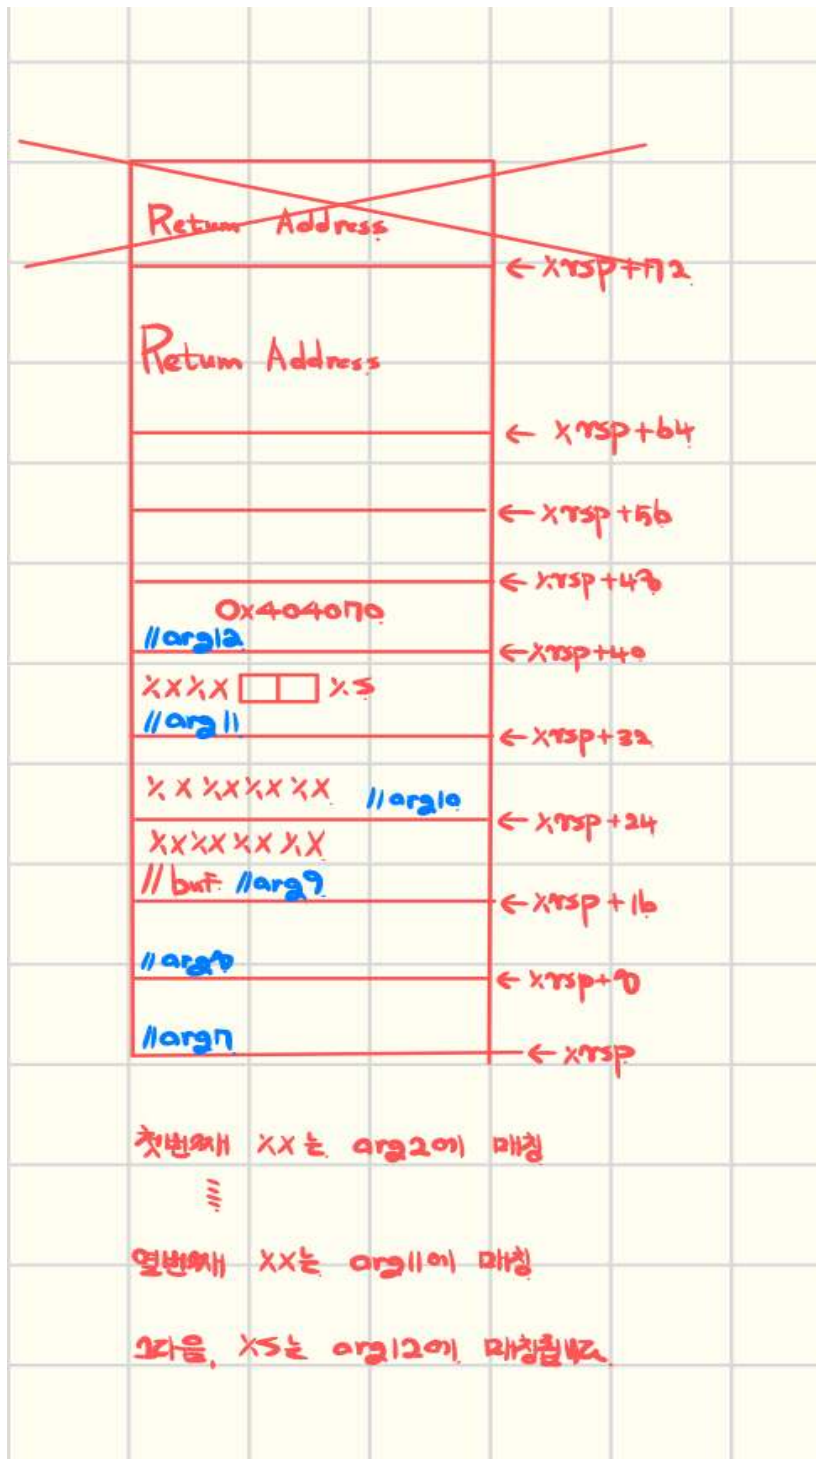 Return Address
← %rsp+72
Return Address
← %rsp+64
← %rsp+56
← %rsp+48
0x404070
//arg12
← %rsp+40
%x%x %s
//arg11
← %rsp+32
%x%x%x%x //arg10
← %rsp+24
%x%x%x%x
//buf //arg9
← %rsp+16
//arg8
← %rsp+8
//arg7
← %rsp
첫번째 %x는 arg2에 매칭
열번째 %x는 arg11에 매칭
그다음, %s는 arg12에